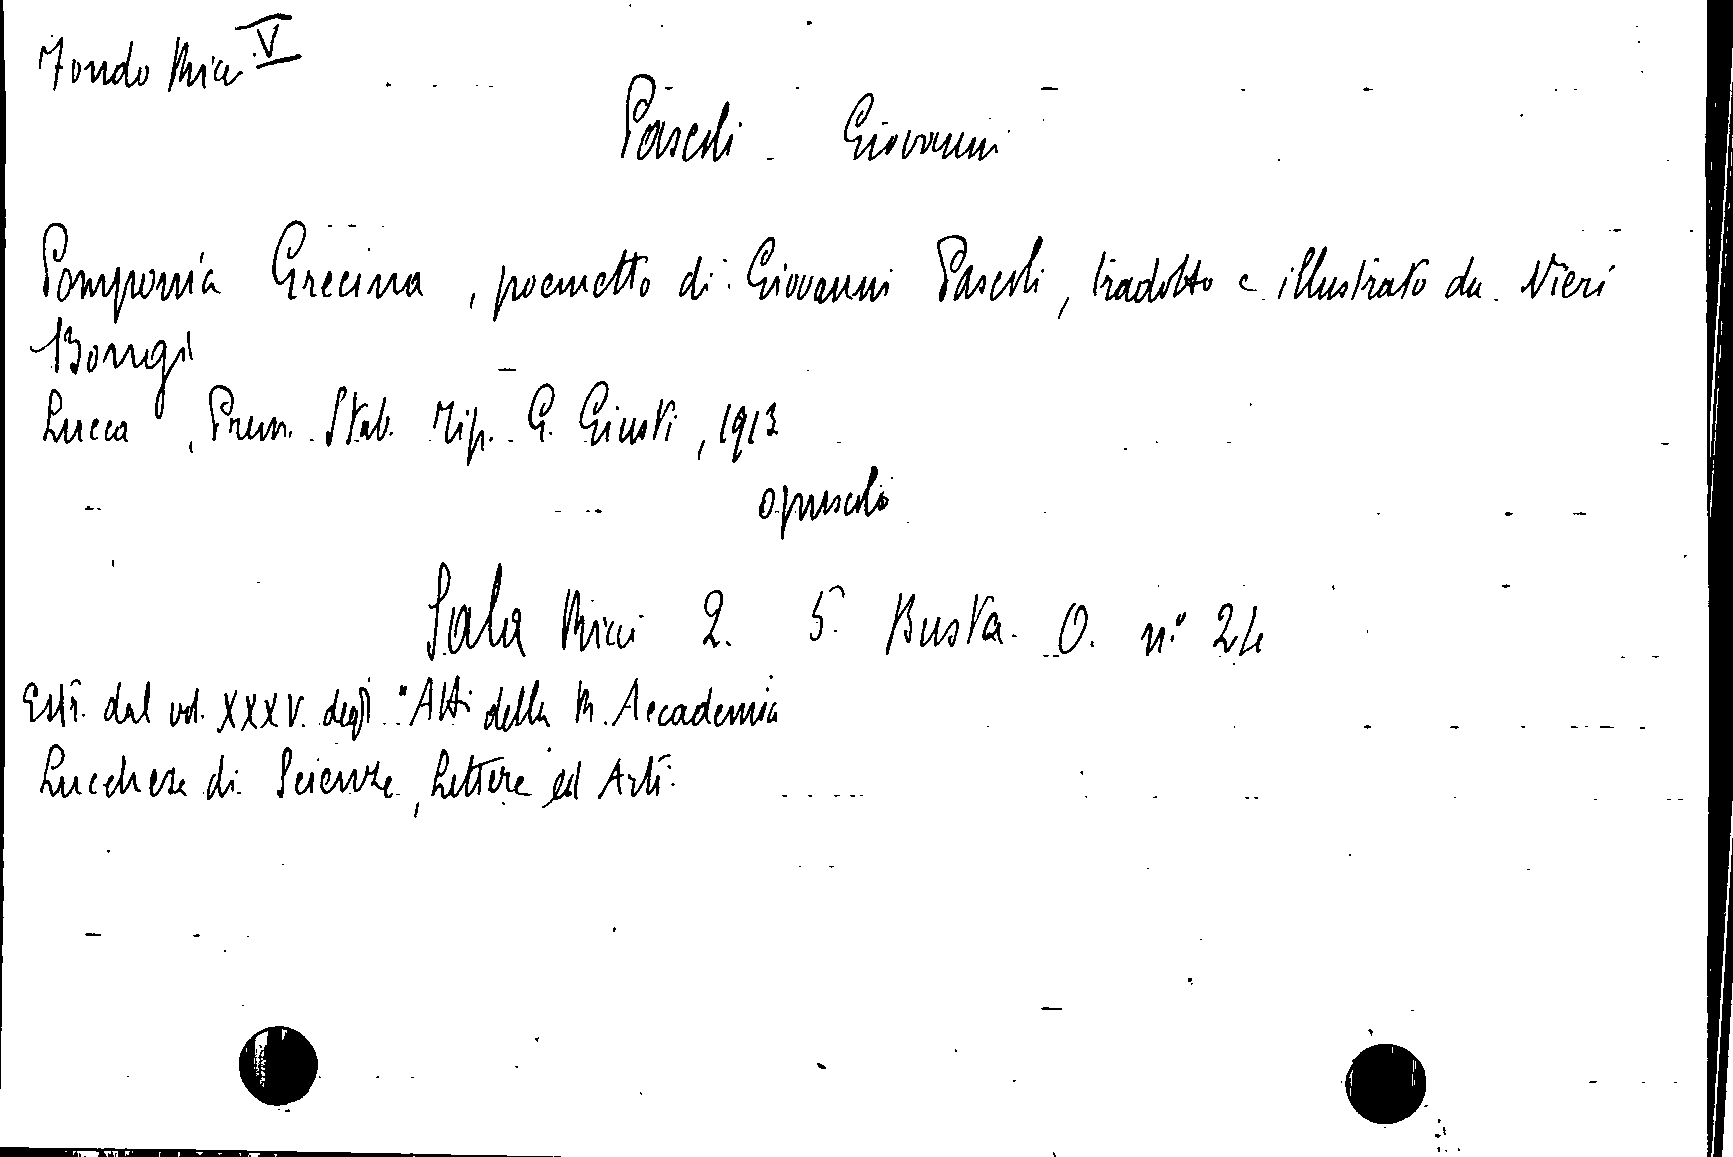 Fondo Ricci V
Pascoli Giovanni
Pomponia Grecina, poemetto di Giovanni Pascoli, tradotto e illustrato da Nieri
Bongi
Lucca, Prem. Stab. Tip. G. Giusti, 1913
opuscolo
Sala Ricci 2. 5. Busta O. n° 24
Estr. dal vol. XXXV. degli "Atti della R. Accademia
Lucchese di Scienze, Lettere ed Arti.